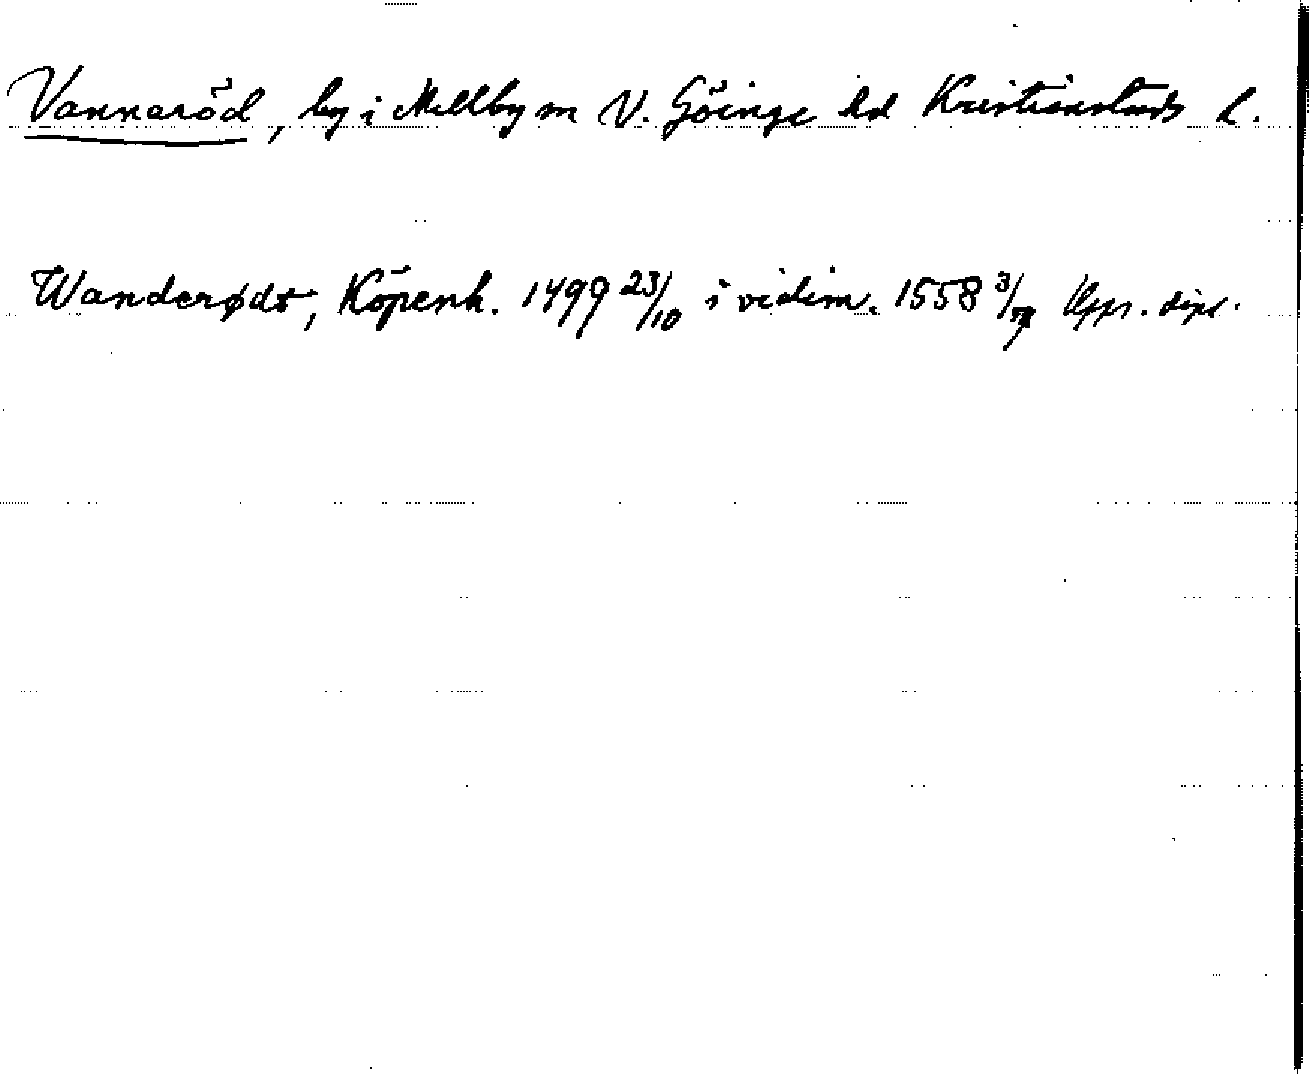 Vannaröd, by i Mellby sn V. Göinge hd Kristianstads l.
Wanderødt, Köpenh. 1499 23/10 i vidim. 1558 3/ Opr. dipl.